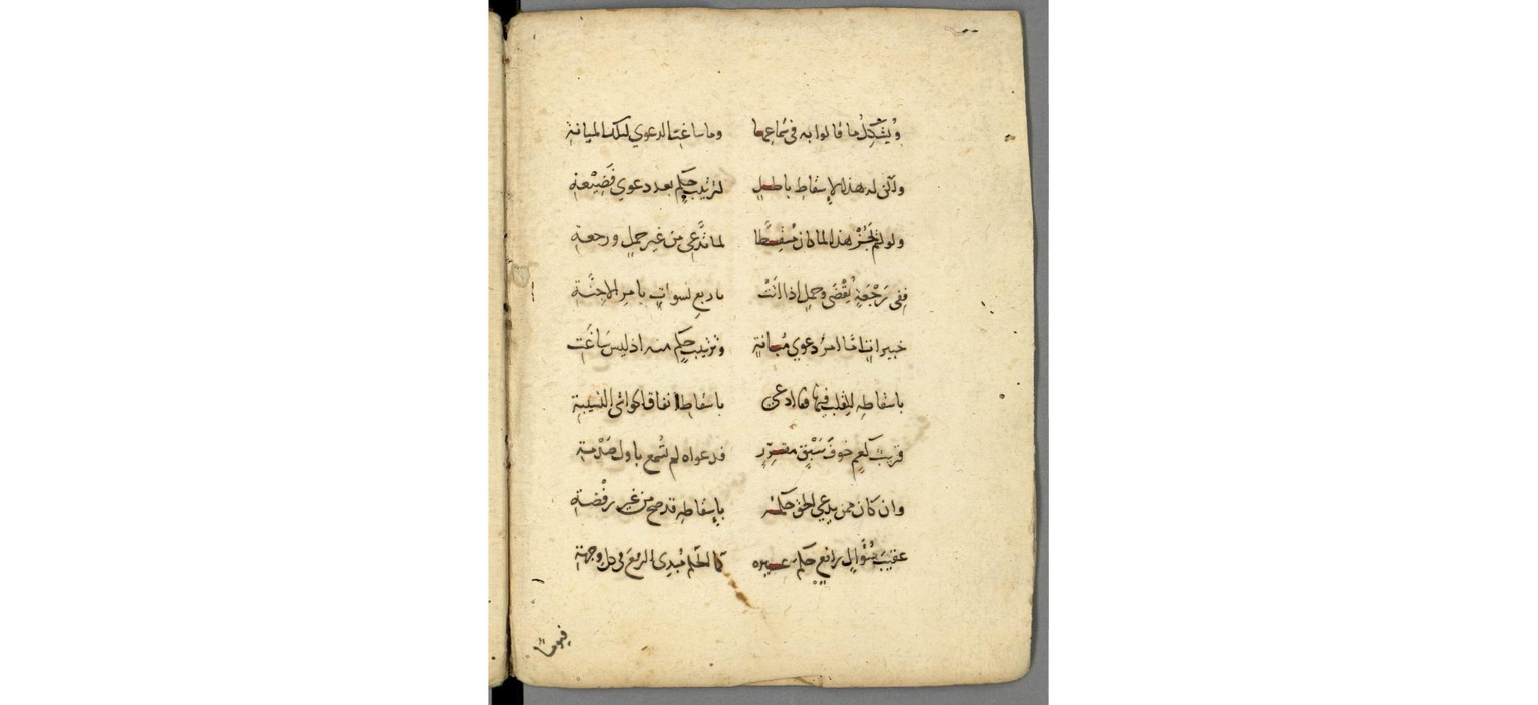 ويُشْكِلُ ما قالوا به في سماعها وما ساغت الدعوي لتلك المبانة
ولكن له هذا الإسقاط باطل لترتيب حكم بعد دعوي قضيْعة
ولو لم نَجُزْ هذا لما كان مُسقِطا لما تدّعي من غير حمل ورجعة
ففي رَجْعَةٍ يُقْضَى وحمل اذا اتَتْ باربع نسوات بامر الاجنّة
خبيرات امّا امرُ دعوي مُبانة وترتيب حكم منه اذ ليس سَاغَت
باسقاطه فيما ادعى باسقاط انفاق
قريب خوفَ سَبْقٍ مقرّر فدعواه لم تُسْمع باول صَدْمة
وان كان ممن يدعي الحق حكمه بإسقاطه قد صح من غير رفْضة
عقيبَ سُؤالٍ رافع حكمَ غيره كما الحكم مُبدى الرفعَ في كل وجهة
فيوما